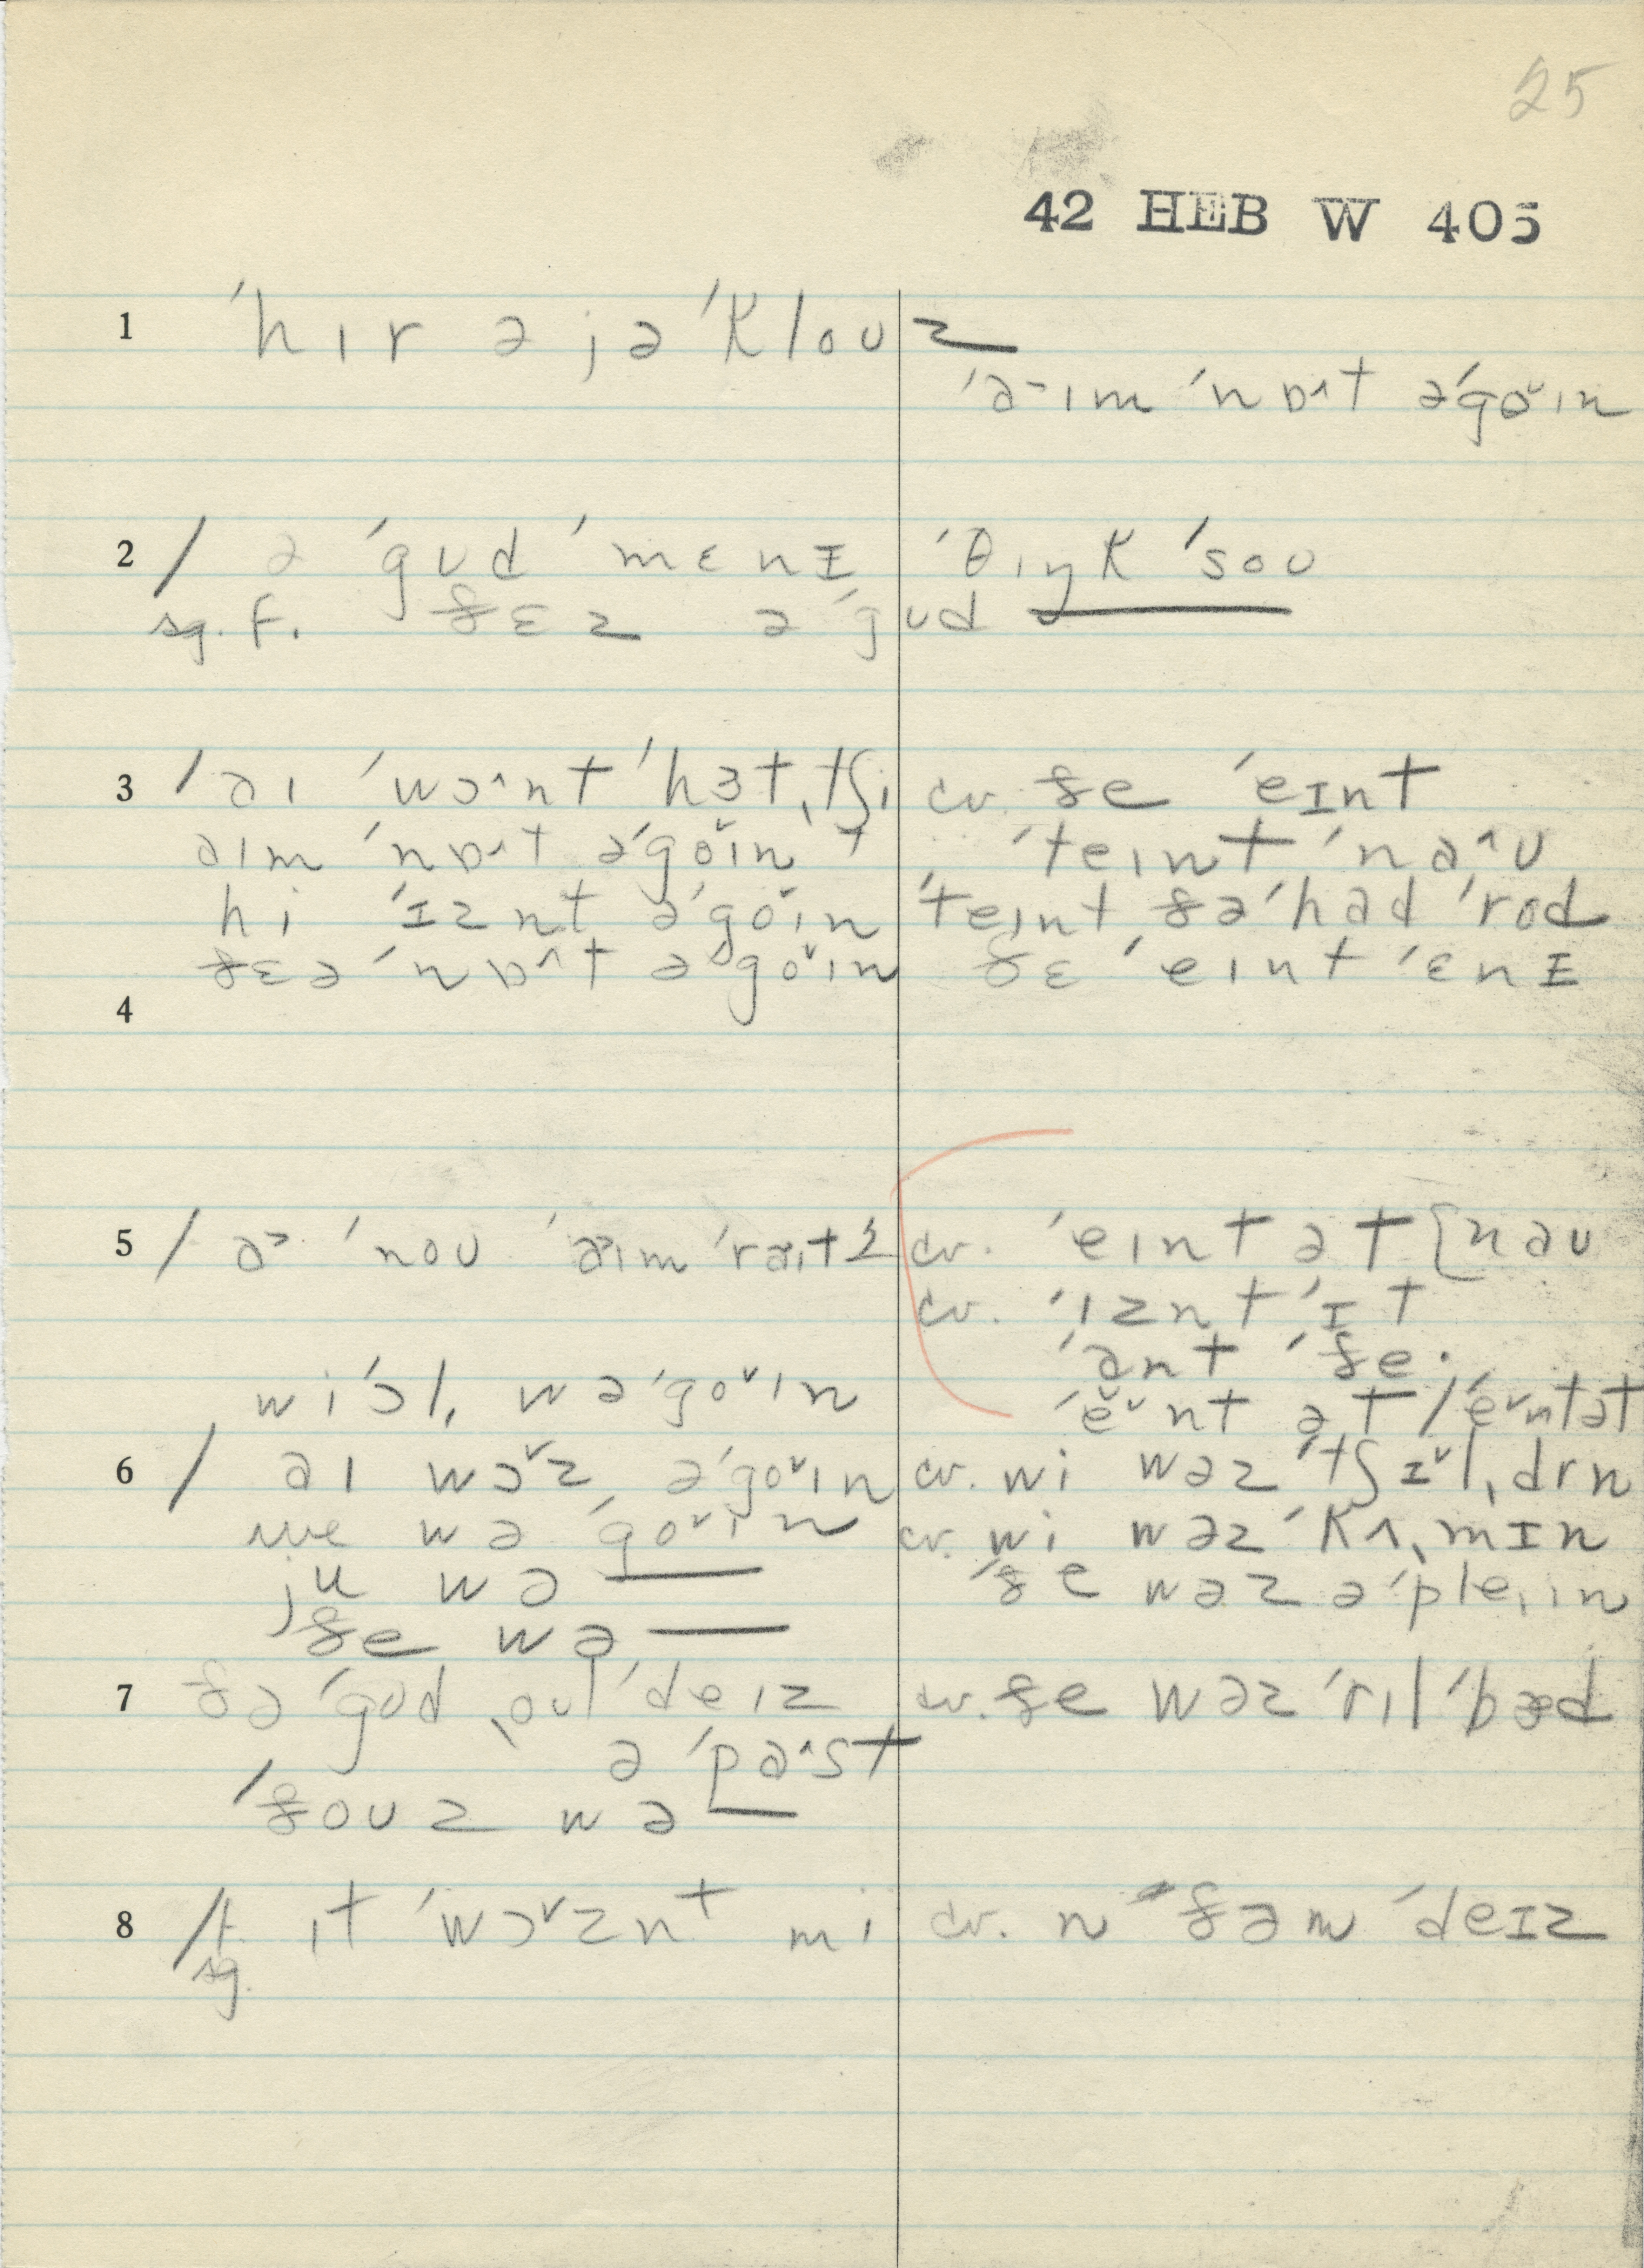 25
42 HEB W 405
1 ˈhɪr ə jəˈklouz
ˈa˗ɪm ˈnɒ^t əˈgoˇɪn
2 / ə ˈgud ˈmɛnI ˈθɪŋk ˈsou
sg. f. ðɛz ə ˈgud
3 / aɪ ˈwɔ^nt ˈhɜtˌtʃi cv. ðe ˈeɪnt
aɪm ˈnɒ^t əˈgoˇɪn ˈteɪnt ˈna^u
hi ˈɪznt əˈgoˇɪn ˈteɪnt ðəˈhad ˈrod
ðɛə ˈnɒ^t əˈgoˇɪn ðɛ ˈeɪnt ˈɛnI
4
5 / ˈnou ˈraɪt cv. ˈeɪnt ət [nau
cv. ˈɪznt ˈɪt
ˈant ˈðe.
wiˈɔlˌ wəˈgoˇɪn ˈeˇnt ət / ˈeˇntət
6 / aɪ wɔˇz əˈgoˇɪn cv. wi wəz ˈtʃɪˇlˌdrn
we wə ˈgoˇɪn cv. wi wəz ˈkʌˌmɪn
ju wə ― ˈðe wəz əˈpleˌɪn
ðe wə ―
7 ðə ˈgud ˌoul ˈdeɪz cv. ðe wəz ˈrɪl ˈbæd
ə ˈpa^st
/ ˈðouz wə ―
8 /f. ɪt ˈwɔˇznt mi cv. n ðəm ˈdeɪz
sg.